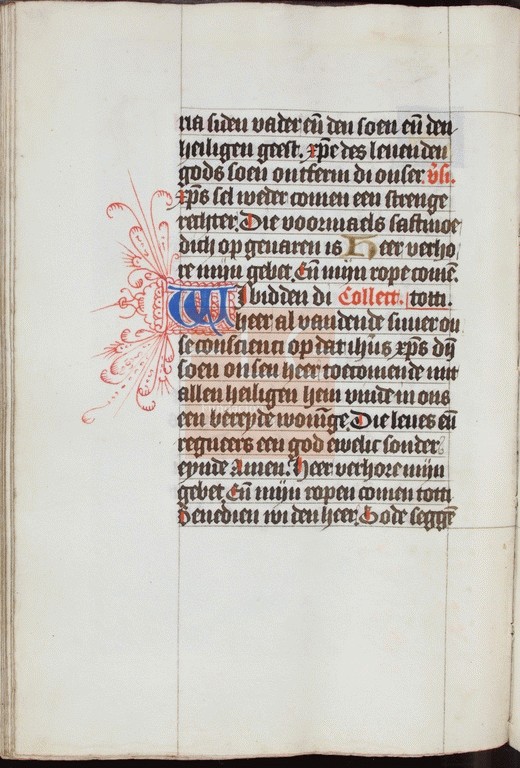 ria si den vader eñ den soen eñ den
heiligen geest. xp̄e des leuenden
gods soen ontferm di onser v̄si.
xp̄s sel weder comen een strenge
rechter. Die voormaels saftmoe
dich op geuaren is Heer verho
re mijn gebet. Eñ mijn rope comē.
Wi bidden di Collect. totti.
heer al vaudende suuer on
se conscienci op dat ih̄us xp̄s dȳ
soen onsen heer toecomende mit
allen heiligen hem vinde in ons
een bereyde wonīge. Die leues eñ
regneers een god ewelic sonder
eynde Amen. Heer verhore mijn
gebet Eñ mijn ropen comen totti
Benedien wi den heer. Gode seggē